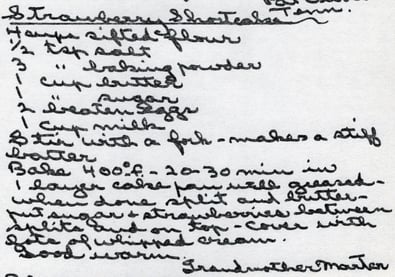 Tenn.
Strawberry Shortcake
4 cups sifted flour
1/2 tsp salt
3 " baking powder
1 cup butter
1 " sugar
2 beaten eggs
1 cup milk
Stir with a fork - makes a stiff
batter
Bake 400° f. - 20-30 min in
1 larger cake pan well greased -
when done split and butter -
put sugar + strawberries between
splits and on top - cover with
lots of whipped cream.
Good warm.
Grandmother Marton